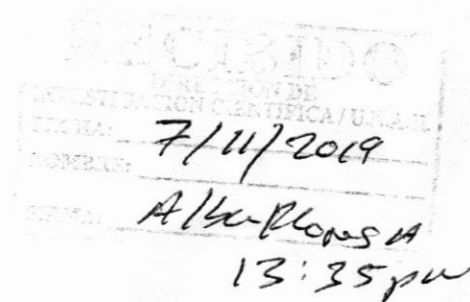 RECIBIDO
DIRECCION DE
INVESTIGACION CIENTIFICA / U.N.A.H.
FECHA: 7/11/2019
NOMBRE:
FIRMA:
13:35 pm